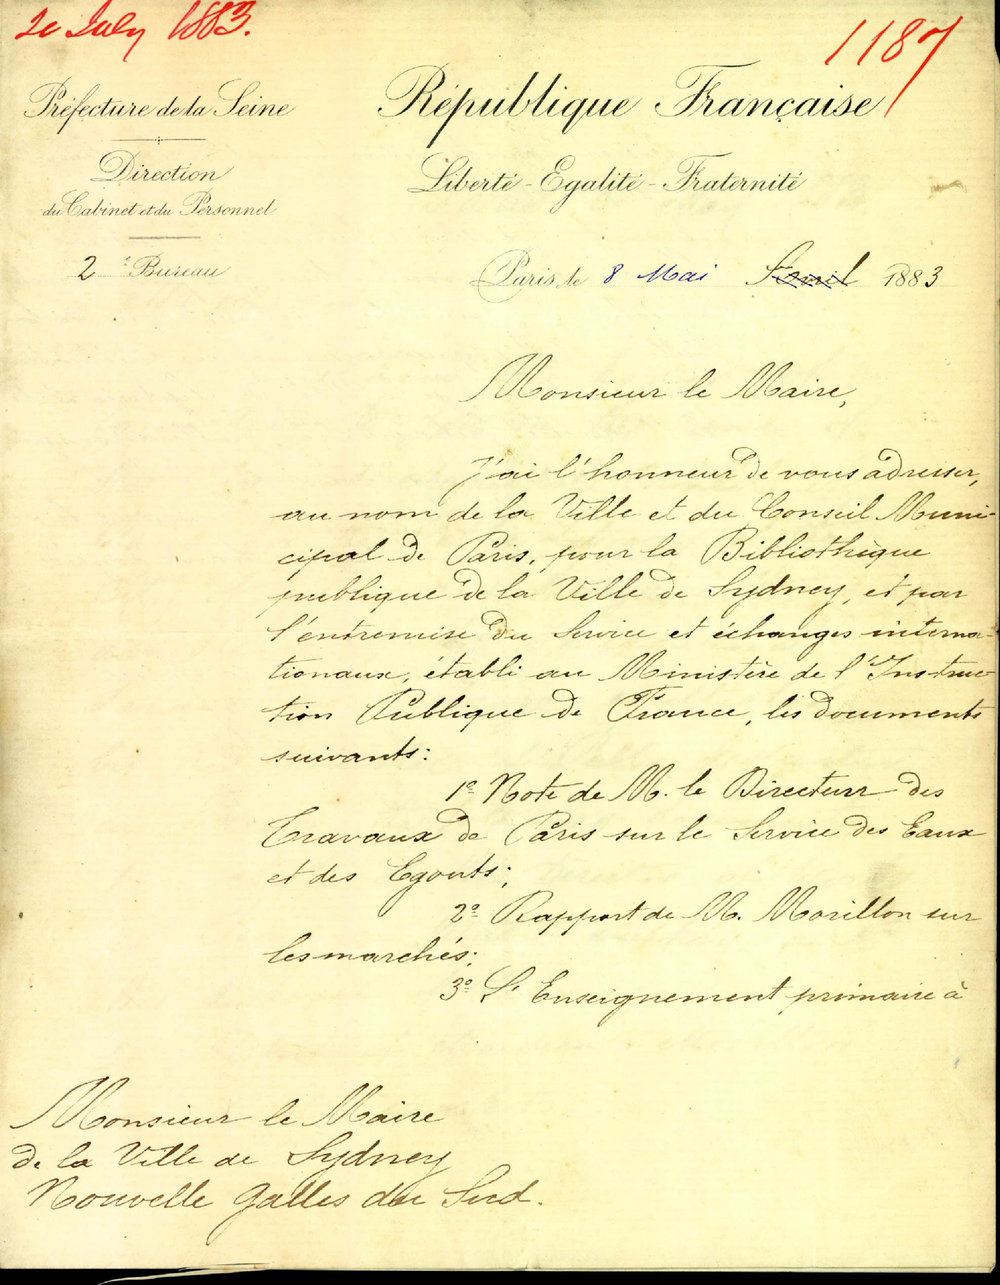 20 July 1883.
1187
Préfecture de la Seine
Direction
du Cabinet et du Personnel
2e Bureau
République Française
Liberté - Egalité - Fraternité
Paris, le 8 Mai Avril 1883
Monsieur le Maire,
J'ai l'honneur de vous adresser,
au nom de la Ville et du Conseil Muni-
cipal de Paris, pour la Bibliothèque
publique de la Ville de Sydney, et par
l'entremise du Service et échanges interna-
tionaux, établi au Ministère de l'Instruc-
tion Publique de France, les documents
suivants:
1º Note de M. le Directeur des
Travaux de Paris sur le Service des Eaux
et des Egouts;
2º Rapport de M. Morillon sur
les marchés;
3º L'Enseignement primaire à
Monsieur le Maire
de la Ville de Sydney
Nouvelle Galles du Sud.